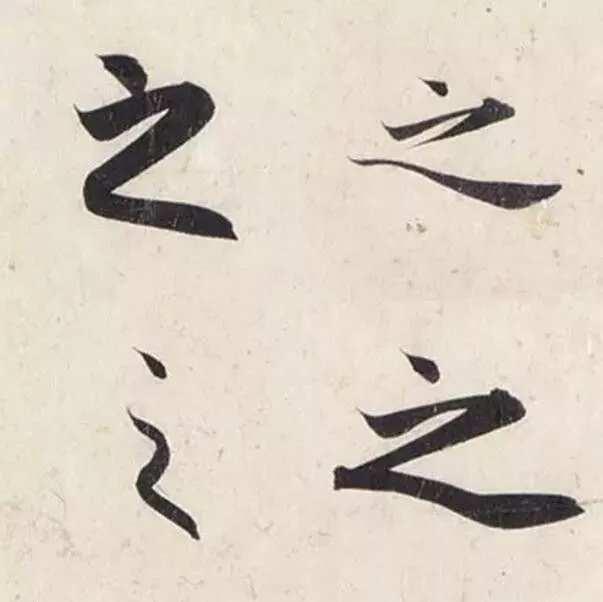 之之
之之